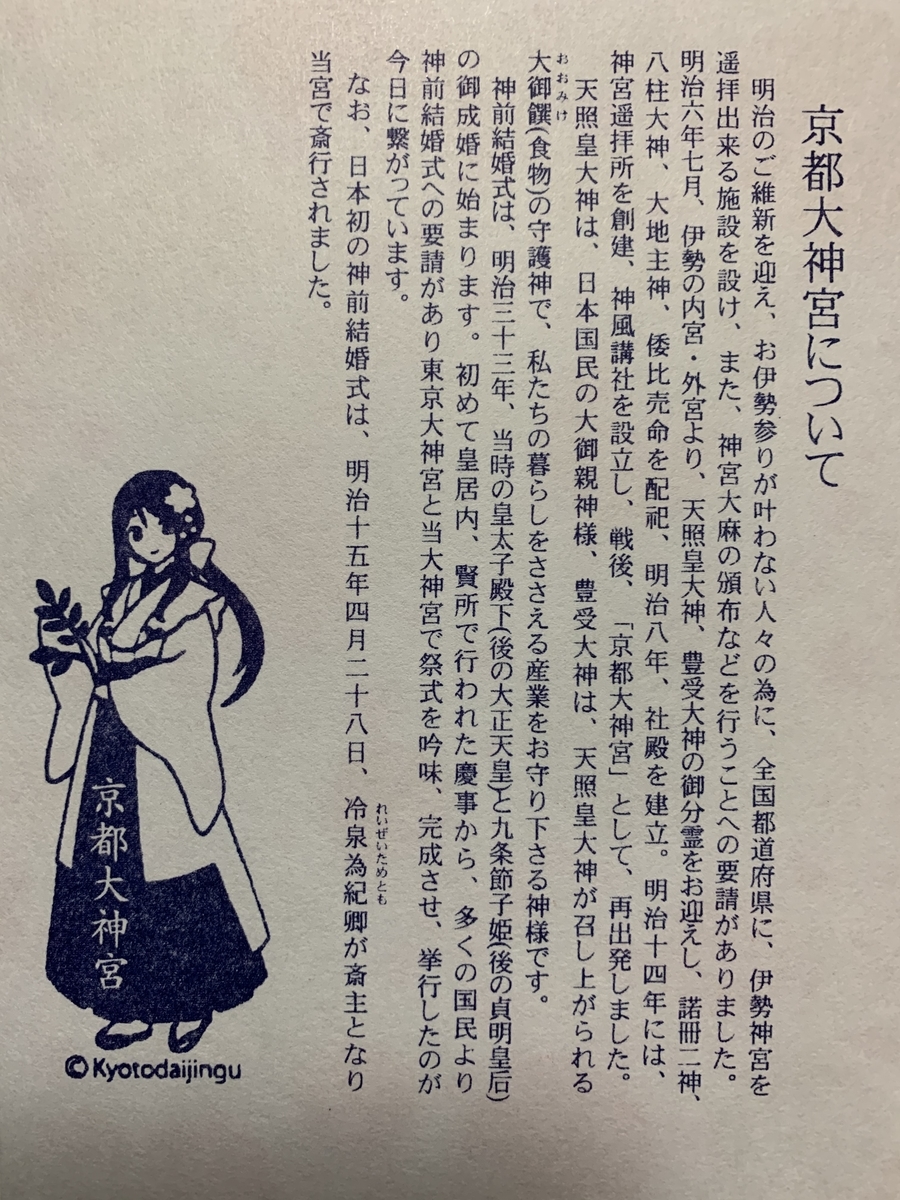 京都大神宮について
明治のご維新を迎え、お伊勢参りが叶わない人々の為に、全国都道府県に、伊勢神宮を
遥拝出来る施設を設け、また、神宮大麻の頒布などを行うことへの要請がありました。
明治六年七月、伊勢の内宮・外宮より、天照皇大神、豊受大神の御分霊をお迎えし、諾冊二神、
八柱大神、大地主神、倭比売命を配祀、明治八年、社殿を建立。明治十四年には、
神宮遥拝所を創建、神風講社を設立し、戦後、「京都大神宮」として、再出発しました。
天照皇大神は、日本国民の大御親神様、豊受大神は、天照皇大神が召し上がられる
おおみけ
大御饌(食物)の守護神で、私たちの暮らしをささえる産業をお守り下さる神様です。
神前結婚式は、明治三十三年、当時の皇太子殿下(後の大正天皇)と九条節子姫(後の貞明皇后)
の御成婚に始まります。初めて皇居内、賢所で行われた慶事から、多くの国民より
神前結婚式への要請があり東京大神宮と当大神宮で祭式を吟味、完成させ、挙行したのが
今日に繋がっています。
れいぜいためとも
なお、日本初の神前結婚式は、明治十五年四月二十八日、冷泉為紀卿が斎主となり
当宮で斎行されました。
京都大神宮
©Kyotodaijingu